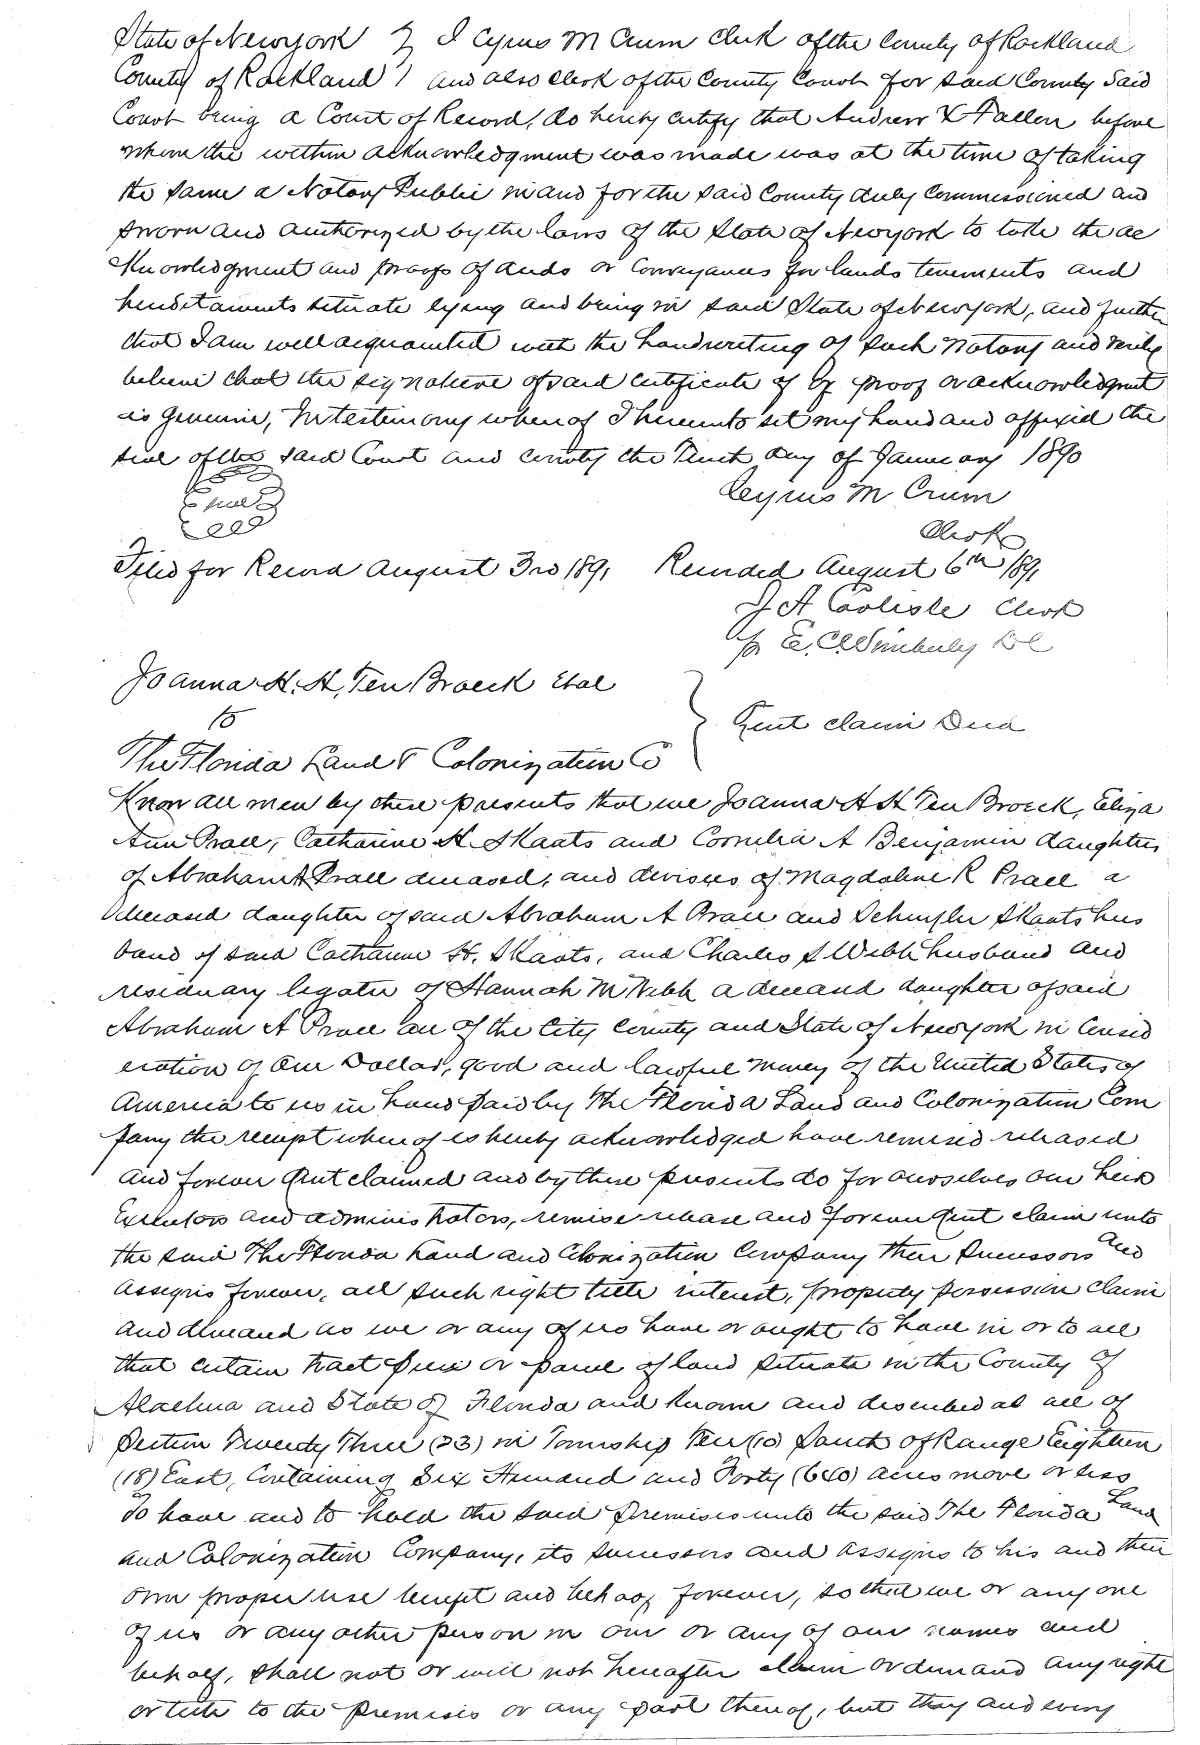 State of New York } I Cyrus M Crum Clerk of the County of Rockland
County of Rockland } and also Clerk of the County Court for said County Said
Court being a Court of Record, do hereby certify that Andrew X Fallon before
whom the within acknowledgment was made was at the time of taking
the same a Notary Public in and for the said County duly Commissioned and
sworn and authorized by the laws of the State of New York to take the ac
knowledgment and proofs of deeds or Conveyances for lands tenements and
hereditaments situate lying and being in said State of New York, and further
that I am well acquainted with the handwriting of such Notary and verily
believe that the signature of said certificate of of proof or acknowledgment
is genuine, In testimony whereof I hereunto set my hand and affixed the
seal of the said Court and County the Tenth day of January 1890
Seal
Cyrus M Crum
Clerk
Filed for Record August 3rd 1891 Recorded August 6th 1891
J A Carlisle Clerk
pr E. C. Wimberly DC
Joanna H. H. Ten Broeck Etal
to
The Florida Land & Colonization Co
} Quit claim Deed
Know all men by these presents that we Joanna H H Ten Broeck, Eliza
Ann Prall, Catharine H. Skaats and Cornelia A Benjamin daughters
of Abraham A Prall deceased, and devisees of Magdaline R Prall a
deceased daughter of said Abraham A Prall and Schuyler Skaats hus
band of said Catharine H. Skaats, and Charles S Webb husband and
residuary legatee of Hannah M Webb a deceased daughter of said
Abraham A Prall all of the City County and State of New York in Consid
eration of One Dollar, good and lawful money of the United States of
America to us in hand paid by The Florida Land and Colonization Com
pany the receipt whereof is hereby acknowledged have remised released
and forever Quit claimed and by these presents do for ourselves our heirs
Executors and administrators, remise release and forever Quit claim unto
the said The Florida Land and Colonization Company their Successors and
assigns forever, all such right title interest, property possession claim
and demand as we or any of us have or ought to have in or to all
that certain tract piece or parcel of land situate in the County of
Alachua and State of Florida and known and described as all of
Section Twenty Three (23) in Township Ten (10) South of Range Eighteen
(18) East, Containing Six Hundred and Forty (640) acres more or less
To have and to hold the said premises unto the said The Florida Land
and Colonization Company, its successors and assigns to his and their
own proper use benefit and behoof forever, so that we or any one
of us or any other person in our or any of our names and
behalf, shall not or will not hereafter claim or demand any right
or title to the premises or any part thereof, but they and every